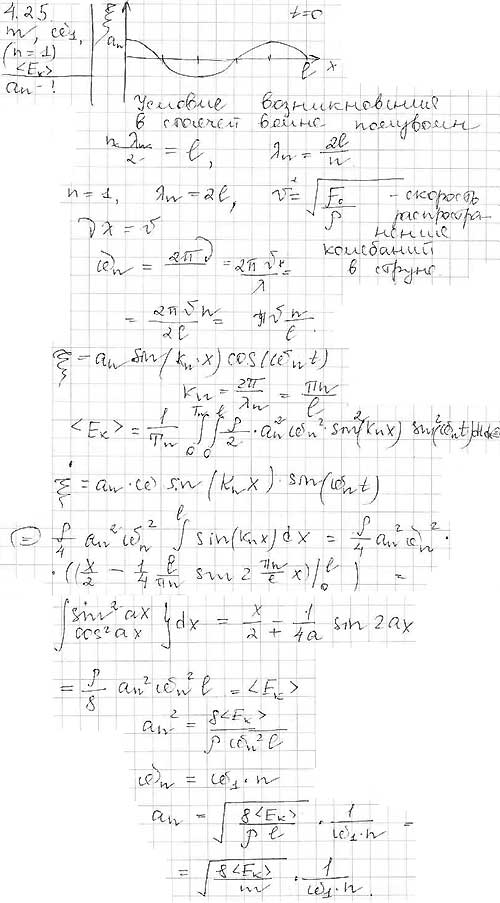 4.25.
m, ω₁,
(n = 1)
<Eₖ>
aₙ - ?
ξ
aₙ
t=0
l
x
Условие возникновения
в стоячей волне полуволн
n λₙ/2 = l, λₙ = 2l/n
n = 1, λₙ = 2l, v = √(F₀/ρ) - скорость
распростра-
нения
колебаний
в струне
νλ = v
ωₙ = 2πν = 2πv/λ =
= 2πvn/2l = πv n/l.
ξ = aₙ sin(kₙ·x) cos(ωₙt)
kₙ = 2π/λₙ = πn/l
<Eₖ> = 1/Tₙ ∫₀^Tₙ ∫₀^l ρ/2 · aₙ² ωₙ² · sin²(kₙx) sin²(ωₙt)
ξ̇ = aₙ · ω sin(kₙx) · sin(ωₙt)
= ρ/4 aₙ² ωₙ² ∫₀^l sin(kₙx) dx = ρ/4 aₙ² ωₙ² ·
· ((x/2 - 1/4 l/πn sin 2 πn/l x)|₀^l) =
∫ {sin² ax cos² ax} dx = x/2 ∓ 1/4a sin 2ax
= ρ/8 aₙ² ωₙ² l = <Eₖ>
aₙ² = 8<Eₖ>/ρ ωₙ² l
ωₙ = ω₁ · n
aₙ = √(8<Eₖ>/ρ l) · 1/ω₁·n =
= √(8<Eₖ>/m) · 1/ω₁·n.